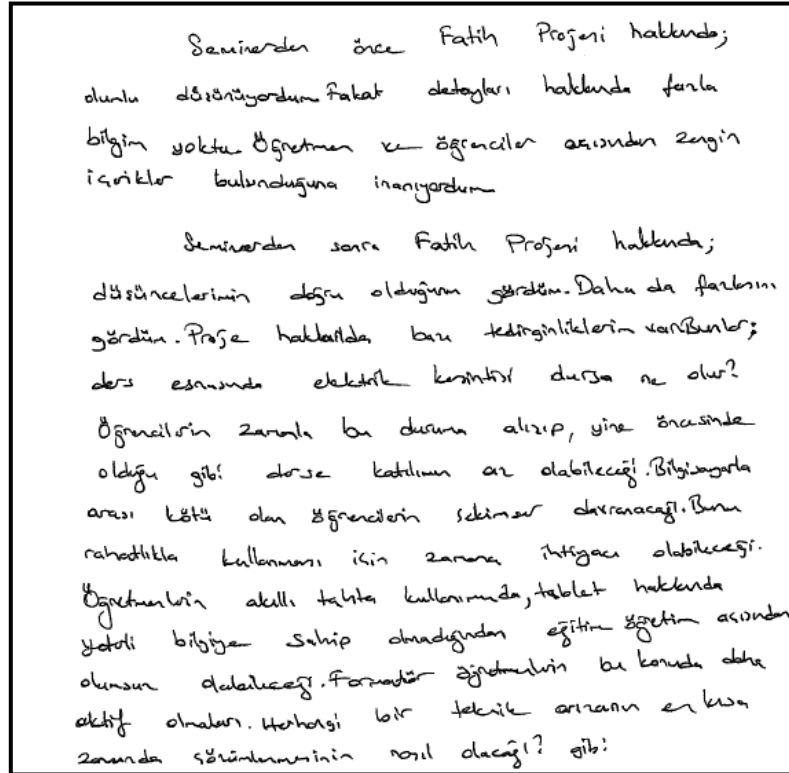 Seminerden önce Fatih Projesi hakkında;
olumlu düşünüyordum. Fakat detayları hakkında fazla
bilgim yoktu. Öğretmen ve öğrenciler açısından zengin
içerikler bulunduğuna inanıyordum
Seminerden sonra Fatih Projesi hakkında;
düşüncelerimin doğru olduğunu gördüm. Daha da fazlasını
gördüm. Proje hakkında bazı tedirginliklerim var. Bunlar;
ders esnasında elektrik kesintisi dursa ne olur?
Öğrencilerin zamanla bu duruma alışıp, yine öncesinde
olduğu gibi derse katılımın az olabileceği. Bilgisayarla
arası kötü olan öğrencilerin çekimser davranacağı. Bunu
rahatlıkla kullanması için zamana ihtiyacı olabileceği.
Öğretmenlerin akıllı tahta kullanımında, tablet hakkında
yeterli bilgiye sahip olmadığından eğitim öğretim açısından
olumsuz olabileceği. Formatör öğretmenlerin bu konuda daha
aktif olmaları. Herhangi bir teknik arızanın en kısa
zamanda çözümlenmesinin nasıl olacağı? gibi